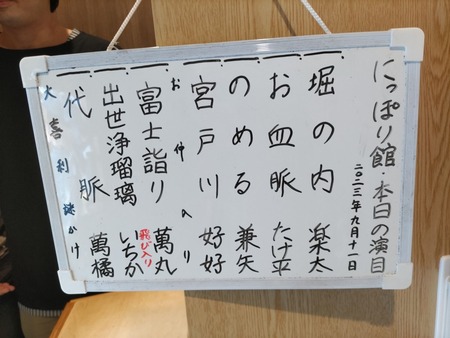 にっぽり館・本日の演目
二〇二三年九月十一日
堀の内 楽太
お血脈 たけ平
のめる 兼矢
宮戸川 好好
お仲入り
富士詣り 萬丸
飛び入り
出世浄瑠璃 いちか
代脈 萬橘
大喜利 謎かけ